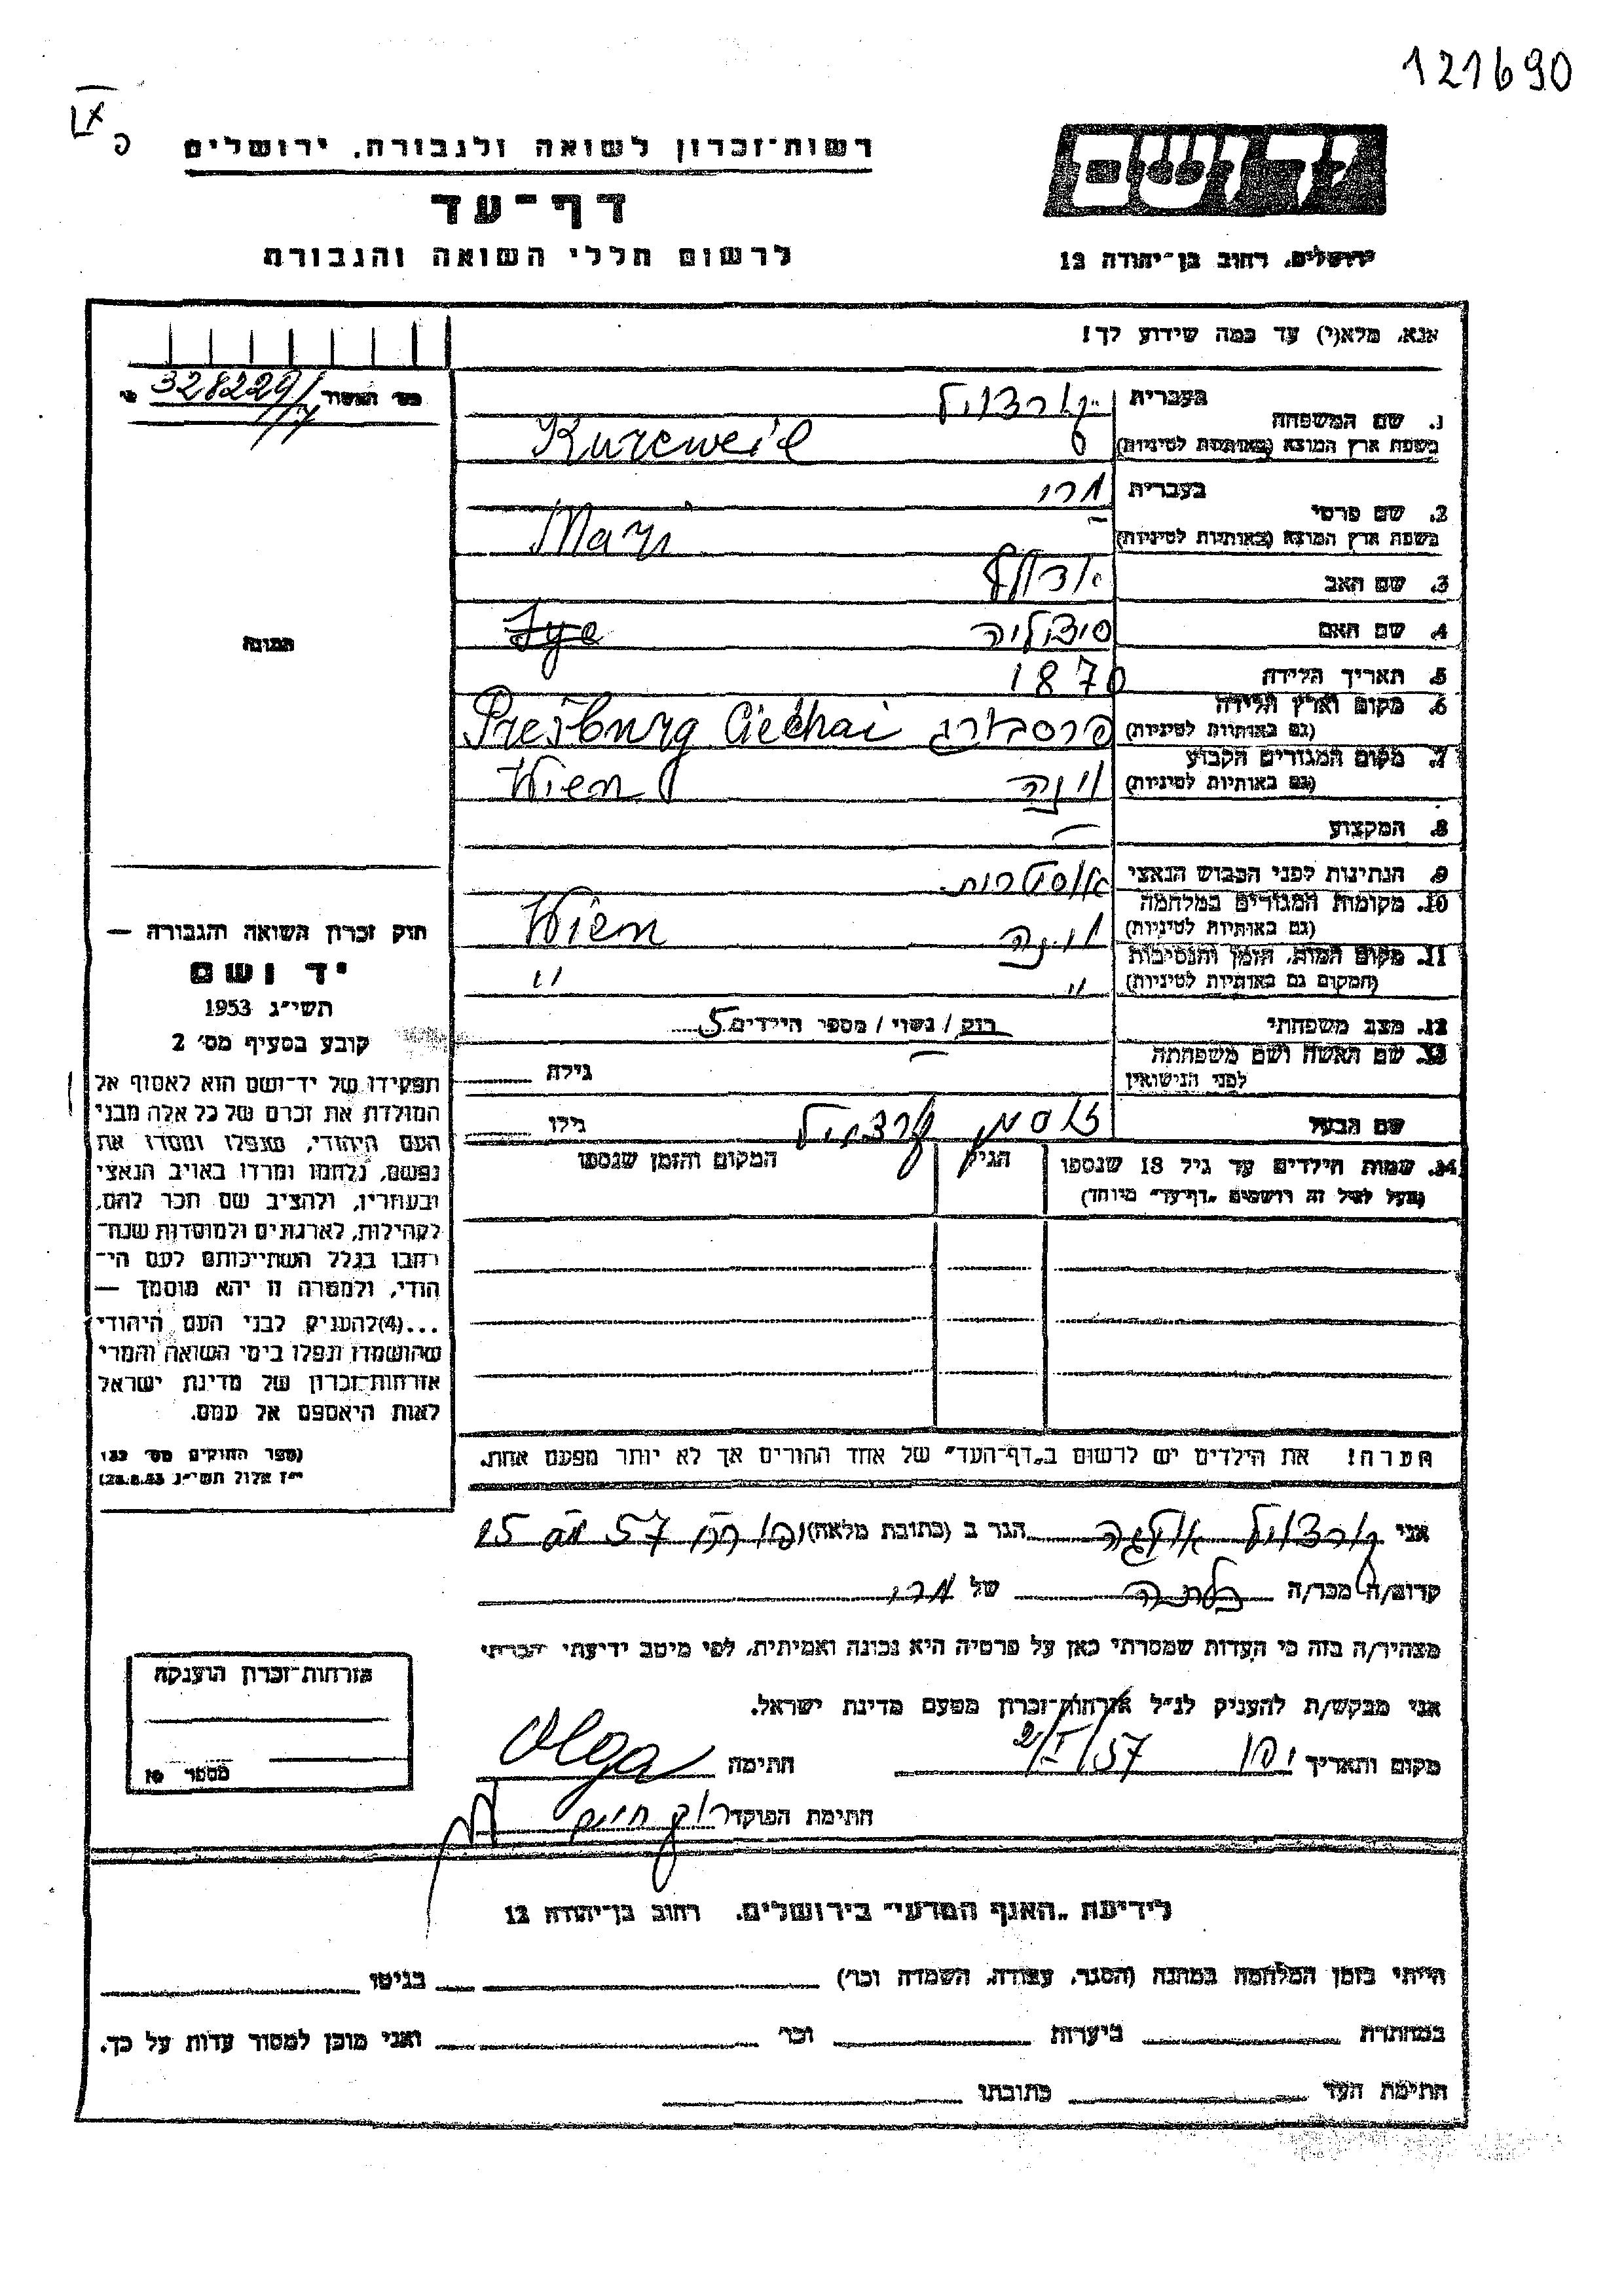 121690
IX
כ
רשות־זכרון לשואה ולגבורה, ירושלים
יד ושם
דף־עד
לרשום חללי השואה והגבורה
ירושלים, רחוב בן־יהודה 12
אנא, מלא(י) עד כמה שידוע לך!
מס' האשור 328229/
1. שם המשפחה
בעברית קורצוויל
בשפת ארץ המוצא (באותיות לטיניות) Kurzweil
2. שם פרטי
בעברית מרי
בשפת ארץ המוצא (באותיות לטיניות) Mari
3. שם האב אדולף
4. שם האם
5. תאריך הלידה 1870
6. מקום וארץ הלידה
(גם באותיות לטיניות) פרסבורג Presburg
7. מקום המגורים הקבוע
(גם באותיות לטיניות) וינה Wien
8. המקצוע —
9. הנתינות לפני הכבוש הנאצי אוסטרית
10. מקומות המגורים במלחמה
(גם באותיות לטיניות) וינה Wien
11. מקום המות, הזמן והנסיבות
(המקום גם באותיות לטיניות) " "
12. מצב משפחתי רוק / נשוי / מספר הילדים 5
13. שם האשה ושם משפחתה
לפני הנישואין — גילה
שם הבעל קורצוויל גילו
14. שמות הילדים עד גיל 18 שנספו הגיל המקום והזמן שנספו
(מעל לגיל זה רושמים „דף־עד" מיוחד)
הערה! את הילדים יש לרשום ב„דף־העד" של אחד ההורים אך לא יותר מפעם אחת.
התמונה
חוק זכרון השואה והגבורה —
יד ושם
תשי"ג 1953
קובע בסעיף מס' 2
תפקידו של יד־ושם הוא לאסוף אל
המולדת את זכרם של כל אלה מבני
העם היהודי, שנפלו ומסרו את
נפשם, נלחמו ומרדו באויב הנאצי
ובעוזריו, ולהציב שם וזכר להם,
לקהילות, לארגונים ולמוסדות שנח־
רבו בגלל השתייכותם לעם הי־
הודי, ולמטרה זו יהא מוסמך —
...(4)להעניק לבני העם היהודי
שהושמדו ונפלו בימי השואה והמרי
אזרחות־זכרון של מדינת ישראל
לאות היאספם אל עמם.
(ספר החוקים מס' 132
י"ז אלול תשי"ג 28.8.53)
אני קורצוויל אולגה הגר ב (כתובת מלאה) 57 25
קרוב/ה מכר/ה של מרי
מצהיר/ה בזה כי העדות שמסרתי כאן על פרטיה היא נכונה ואמיתית, לפי מיטב ידיעתי והכרתי
אני מבקש/ת להעניק לנ"ל אזרחות־זכרון מטעם מדינת ישראל.
מקום ותאריך יפו 2/I/57 חתימה Olga
חתימת הפוקד
אזרחות־זכרון הוענקה
מספר
לידיעת „האגף המדעי" בירושלים, רחוב בן־יהודה 12
הייתי בזמן המלחמה במחנה (הסגר, עבודה, השמדה וכו') בגיטו
במחתרת ביערות וכו' ואני מוכן למסור עדות על כך.
חתימת העד כתובתו